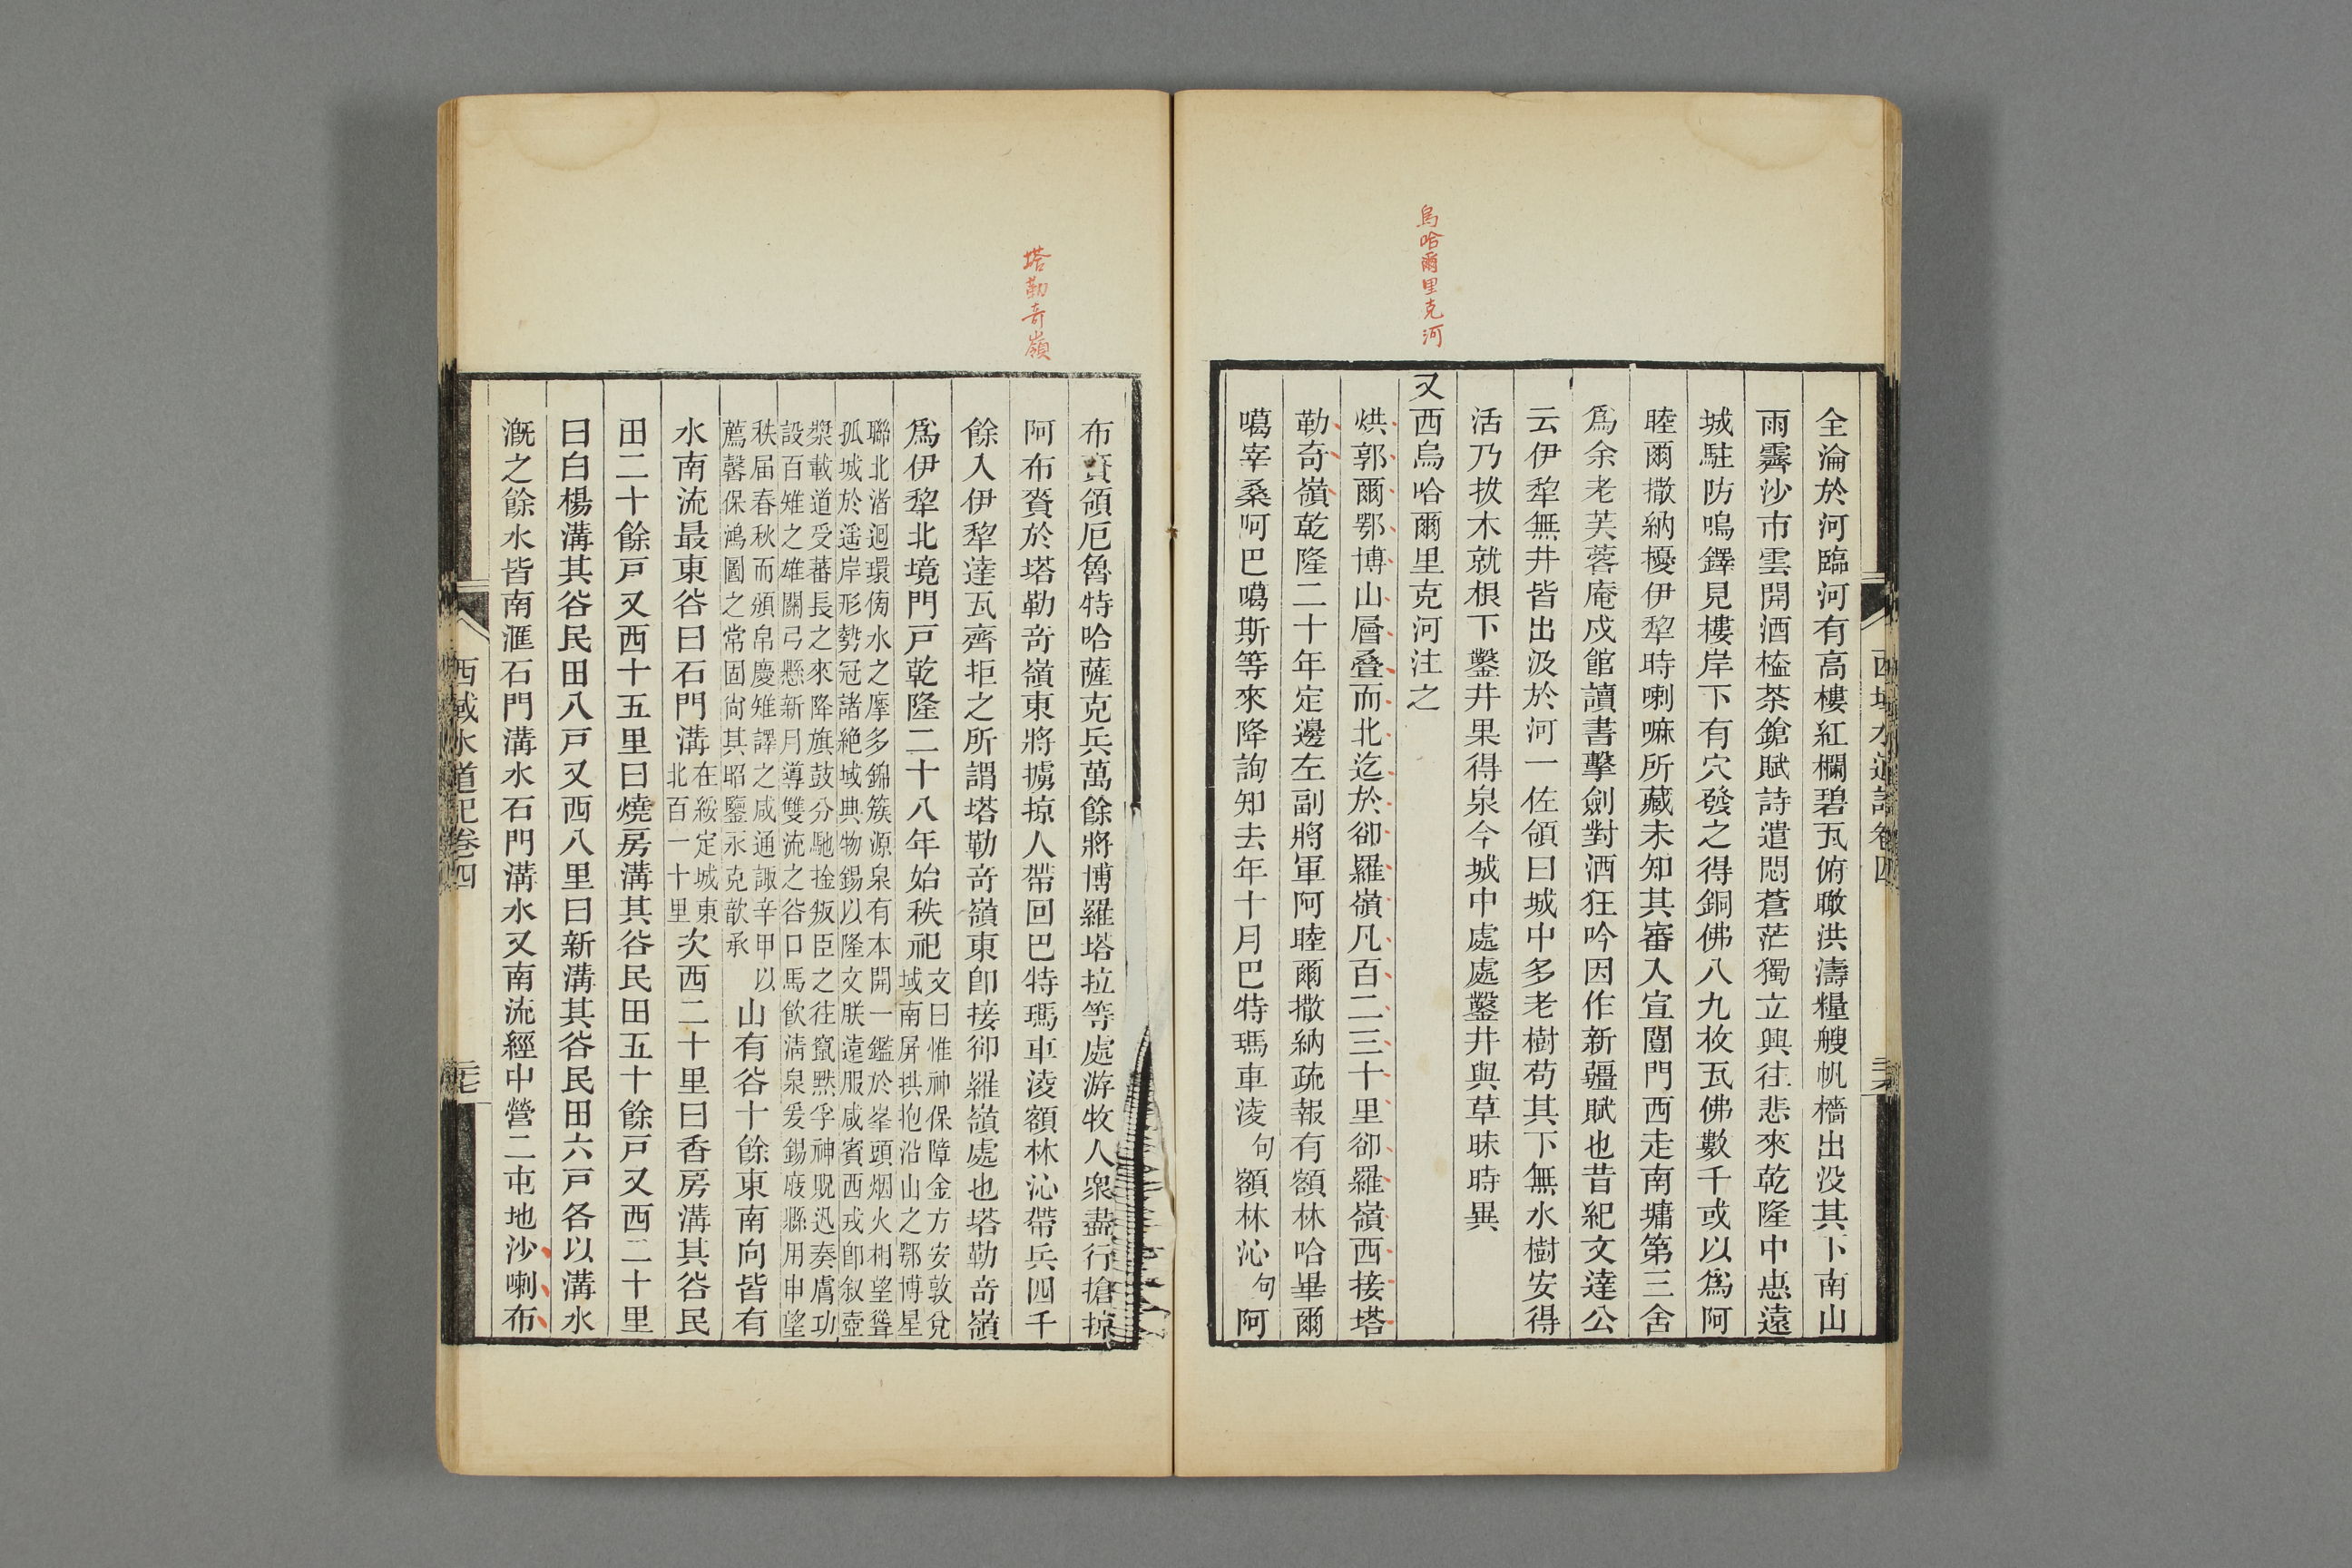 烏哈爾里克河
全淪於河臨河有高樓紅欄碧瓦俯瞰洪濤糧艘帆檣出没其下南山
雨霽沙市雲開酒榼茶鎗賦詩遣悶蒼茫獨立興往悲來乾隆中惠遠
城駐防鳴鐸見樓岸下有穴發之得銅佛八九枚瓦佛數千或以爲阿
睦爾撒納擾伊犂時喇嘛所藏未知其審入宣闓門西走南墉第三舍
爲余老芙蓉庵戍館讀書擊劍對酒狂吟因作新疆賦也昔紀文達公
云伊犂無井皆出汲於河一佐領曰城中多老樹苟其下無水樹安得
活乃拔木就根下鑿井果得泉今城中處處鑿井與草昧時異
又西烏哈爾里克河注之
烘郭爾鄂博山層疊而北迄於卻羅嶺凡百二三十里卻羅嶺西接塔
勒奇嶺乾隆二十年定邊左副將軍阿睦爾撒納疏報有額林哈畢爾
噶宰桑阿巴噶斯等來降詢知去年十月巴特瑪車淩句額林沁句阿
西域水道記卷四
塔勒奇嶺
布賚領厄魯特哈薩克兵萬餘將博羅塔拉等處游牧人衆盡行搶掠
阿布賚於塔勒奇嶺東將擄掠人帶回巴特瑪車淩額林沁帶兵四千
餘入伊犂達瓦齊拒之所謂塔勒奇嶺東卽接卻羅嶺處也塔勒奇嶺
爲伊犂北境門戸乾隆二十八年始秩祀文曰惟神保障金方安敦兌
域南屏拱抱沿山之鄂博星
聯北渚迴環傍水之摩多錦簇源泉有本開一鑑於峯頭烟火相望聳
孤城於遥岸形勢冠諸絶域典物錫以隆文朕遠服咸賓西戎卽叙壺
漿載道受蕃長之來降旗鼓分馳捦叛臣之往竄黙孚神貺迅奏膚功
設百雉之雄關弓懸新月導雙流之谷口馬飮淸泉爰錫庪縣用申望
秩届春秋而頒帛慶雉譯之咸通諏辛甲以
薦馨保鴻圖之常固尙其昭鑒永克歆承
山有谷十餘東南向皆有
水南流最東谷曰石門溝在綏定城東
北百一十里
次西二十里曰香房溝其谷民
田二十餘戸又西十五里曰燒房溝其谷民田五十餘戸又西二十里
曰白楊溝其谷民田八戸又西八里曰新溝其谷民田六戸各以溝水
漑之餘水皆南滙石門溝水石門溝水又南流經中營二屯地沙喇布
西域水道記卷四